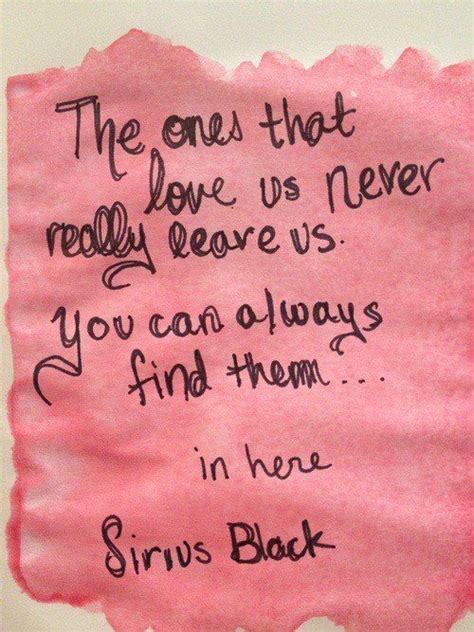 The ones that
love us never
really leave us.
You can always
find them...
in here
Sirius Black